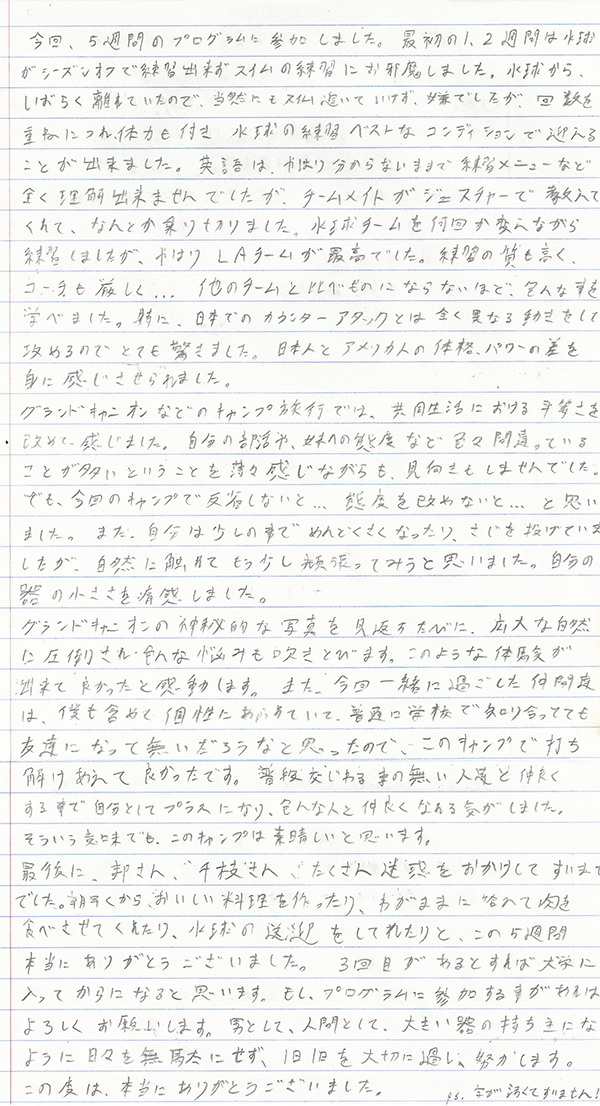 今回、5週間のプログラムに参加しました。最初の1、2週間は水球
がシーズンオフで練習出来ずスイムの練習にお邪魔しました。水球から、
しばらく離れていたので、当然にもスイム追いていけず、嫌でしたが、回数を
重ねにつれ体力も付き 水球の練習ベストなコンディションで迎える
ことが出来ました。英語は、やはり分からないままで練習メニューなど
全く理解出来ませんでしたが チームメイトがジェスチャーで教えて
くれて、なんとか乗り切りました。水球チームを何回か変えながら
練習しましたが、やはり LAチームが最高でした。練習の質も高く、
コーチも厳しく... 他のチームと比べものにならないほど、色んな事を
学べました。特に、日本でのカウンターアタックとは全く異なる動きをして
攻めるのでとても驚きました。日本人とアメリカ人の体格、パワーの差を
身に感じさせられました。
グランドキャニオンなどのキャンプ旅行では、共同生活における平等さを
改めて感じました。自分の部活や、妹への態度など色々間違っている
ことが多いということを薄々感じながらも、見向きもしませんでした。
でも、今回のキャンプで反省しないと... 態度を改めないと... と思い
ました。また、自分は少しの事でめんどくさくなったり、さじを投げていま
したが、自然に触れて もう少し頑張ってみうと思いました。自分の
器の小ささを痛感しました。
グランドキャニオンの神秘的な写真を見返すたびに、広大な自然
に圧倒され色んな悩みも吹きとびます。このような体験が
出来て良かったと感動します。また、今回一緒に過ごした仲間達
は、僕も含めて個性にあふれていて、普通に学校で知り合ってても
友達になって無いだろうなと思ったので、このキャンプで打ち
解けあえて良かったです。普段交じわる事の無い人達と仲良く
する事で自分としてプラスになり、色んな人と仲良くなれる気がしました。
そういう意味でも、このキャンプは素晴しいと思います。
最後に、郭さん、千枝さん、たくさん迷惑をおかけしてすいませ
でした。朝早くから、おいしい料理を作ったり、わがままに答えて肉を
食べさせてくれたり、水球の送迎をしてれたりと、この5週間
本当にありがとうございました。 3回目があるとすれば大学に
入ってからになると思います。もし、プログラムに参加する事があれば
よろしくお願いします。男として、人間として、大きい器の持ち主にな
ように日々を無駄にせず、1日1日を大切に過し、努力します。
この度は、本当にありがとうございました。 P.S. 字が汚くてすいません!